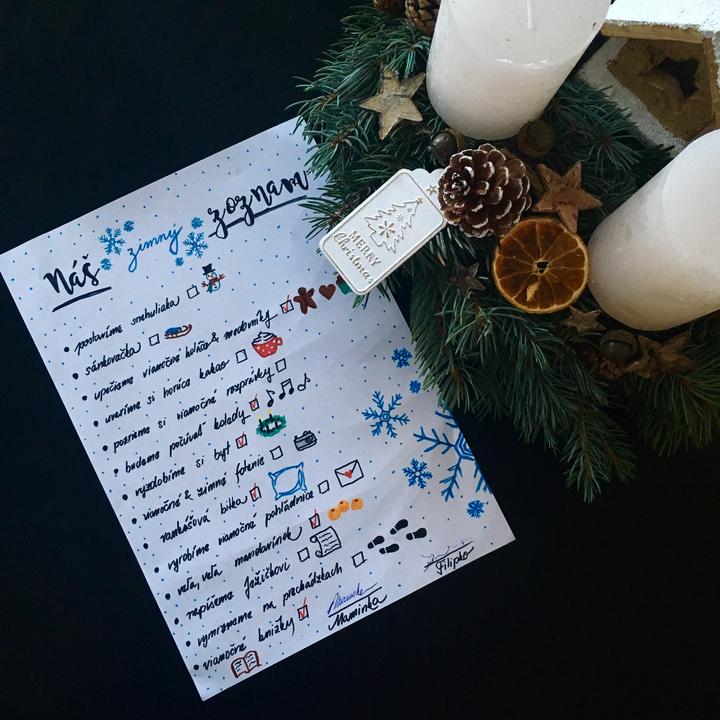 Náš zimný zoznam
postavíme snehuliaka
sánkovačka
upečieme vianočné koláče & medovníky
uvaríme si horúce kakao
pozrieme si vianočné rozprávky
budeme počúvať koledy
vyzdobíme si byt
vianočné & zimné fotenie
vankúšová bitka
vyrobíme vianočné pohľadnice
veľa, veľa mandarínok
napíšeme Ježiškovi
vymrzneme na prechádzkach
vianočné knižky
Maminka
Filipko
MERRY
Christmas